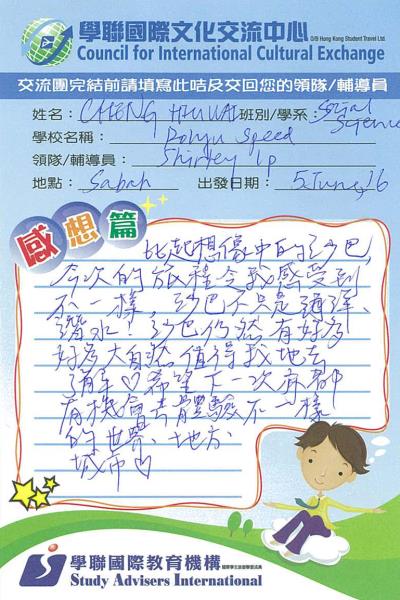 學聯國際文化交流中心 D/B Hong Kong Student Travel Ltd.
Council for International Cultural Exchange
交流團完結前請填寫此咭及交回您的領隊/輔導員
姓名： CHENG HIU WAI 班別/學系： Social Science
學校名稱： Polyu speed
領隊/輔導員： Shirley Ip
地點： Sabah 出發日期： 5 June, 16
感想篇
比起想像中的沙巴,
今次的旅程令我感受到
不一樣，沙巴不只是浮潛、
潛水！沙巴仍然有好多
好多大自然值得我地去
了解♡希望下一次亦都
有機會去體驗不一樣
的世界、地方、
城市♡
學聯國際教育機構
Study Advisers International